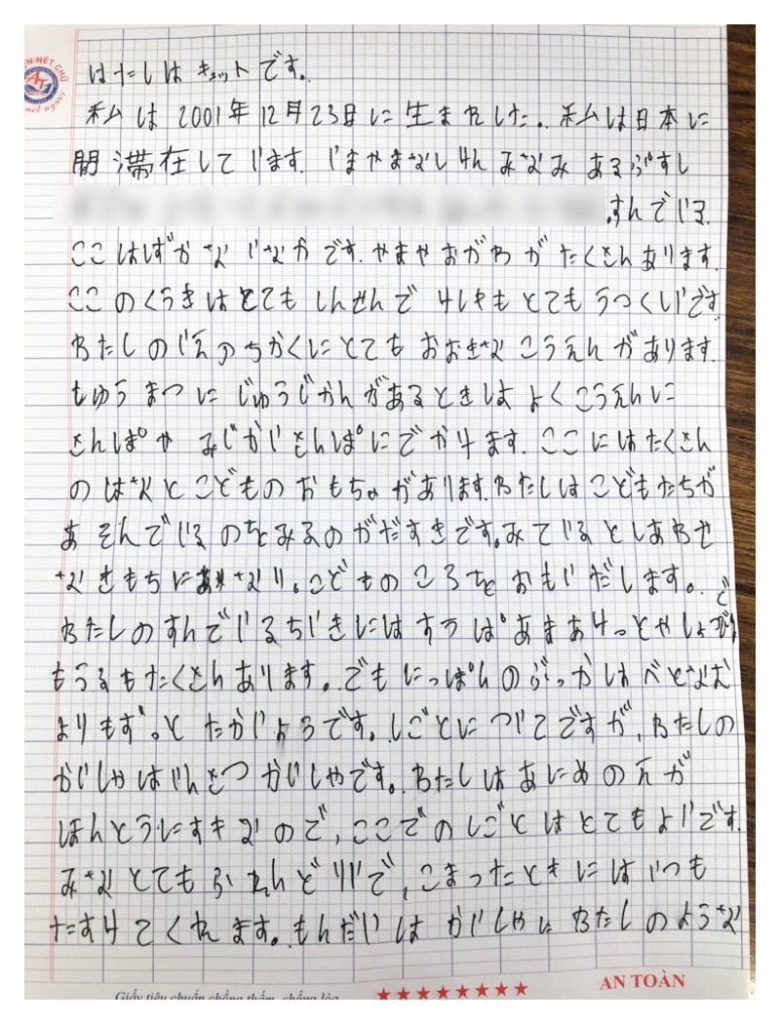 わたしは キェットです。
私は 2001年 12月23日に 生まれした。私は日本に
間 滞在して います. いまやまなしけん みなみ あるぷすし
.すんでいる
ここはしずかな いなかです. やまや おがわ が たくさんあります.
ここ のくうきはとても しんせんで けしきも とても うつくしいです
わたしのいえのちかくにとても おおきな こうえんがあります.
しゅうまつに じゅうじかんがあるときは よくこうえんに
さんぽや みじかいさんぽにでかけます. ここにはたくさん
のはなとこどものおもちゃがあります.わたしはこどもたちが
あそんでいるのをみるのがだすきです。みているとしあわせ
なきもちになり。こどもの ころを おもいだします。
わたしのすんでいるちいきにはすうぱあまあけっとやしょっぴんぐ
もうるもたくさんあります。でもにっぽんのぶっかはべとなむ
よりもずっと たかいようです。しごとについてですが、わたしの
かいしゃはいんさつ かいしゃです。わたしはあにめのえが
ほんとうにすきなので、ここでのしごとはとてもよいです.
みなとてもふれんどりいで、こまったときにはいつも
たすけてくれます。もんだいは かいしゃに わたしのような
AN TOÀN